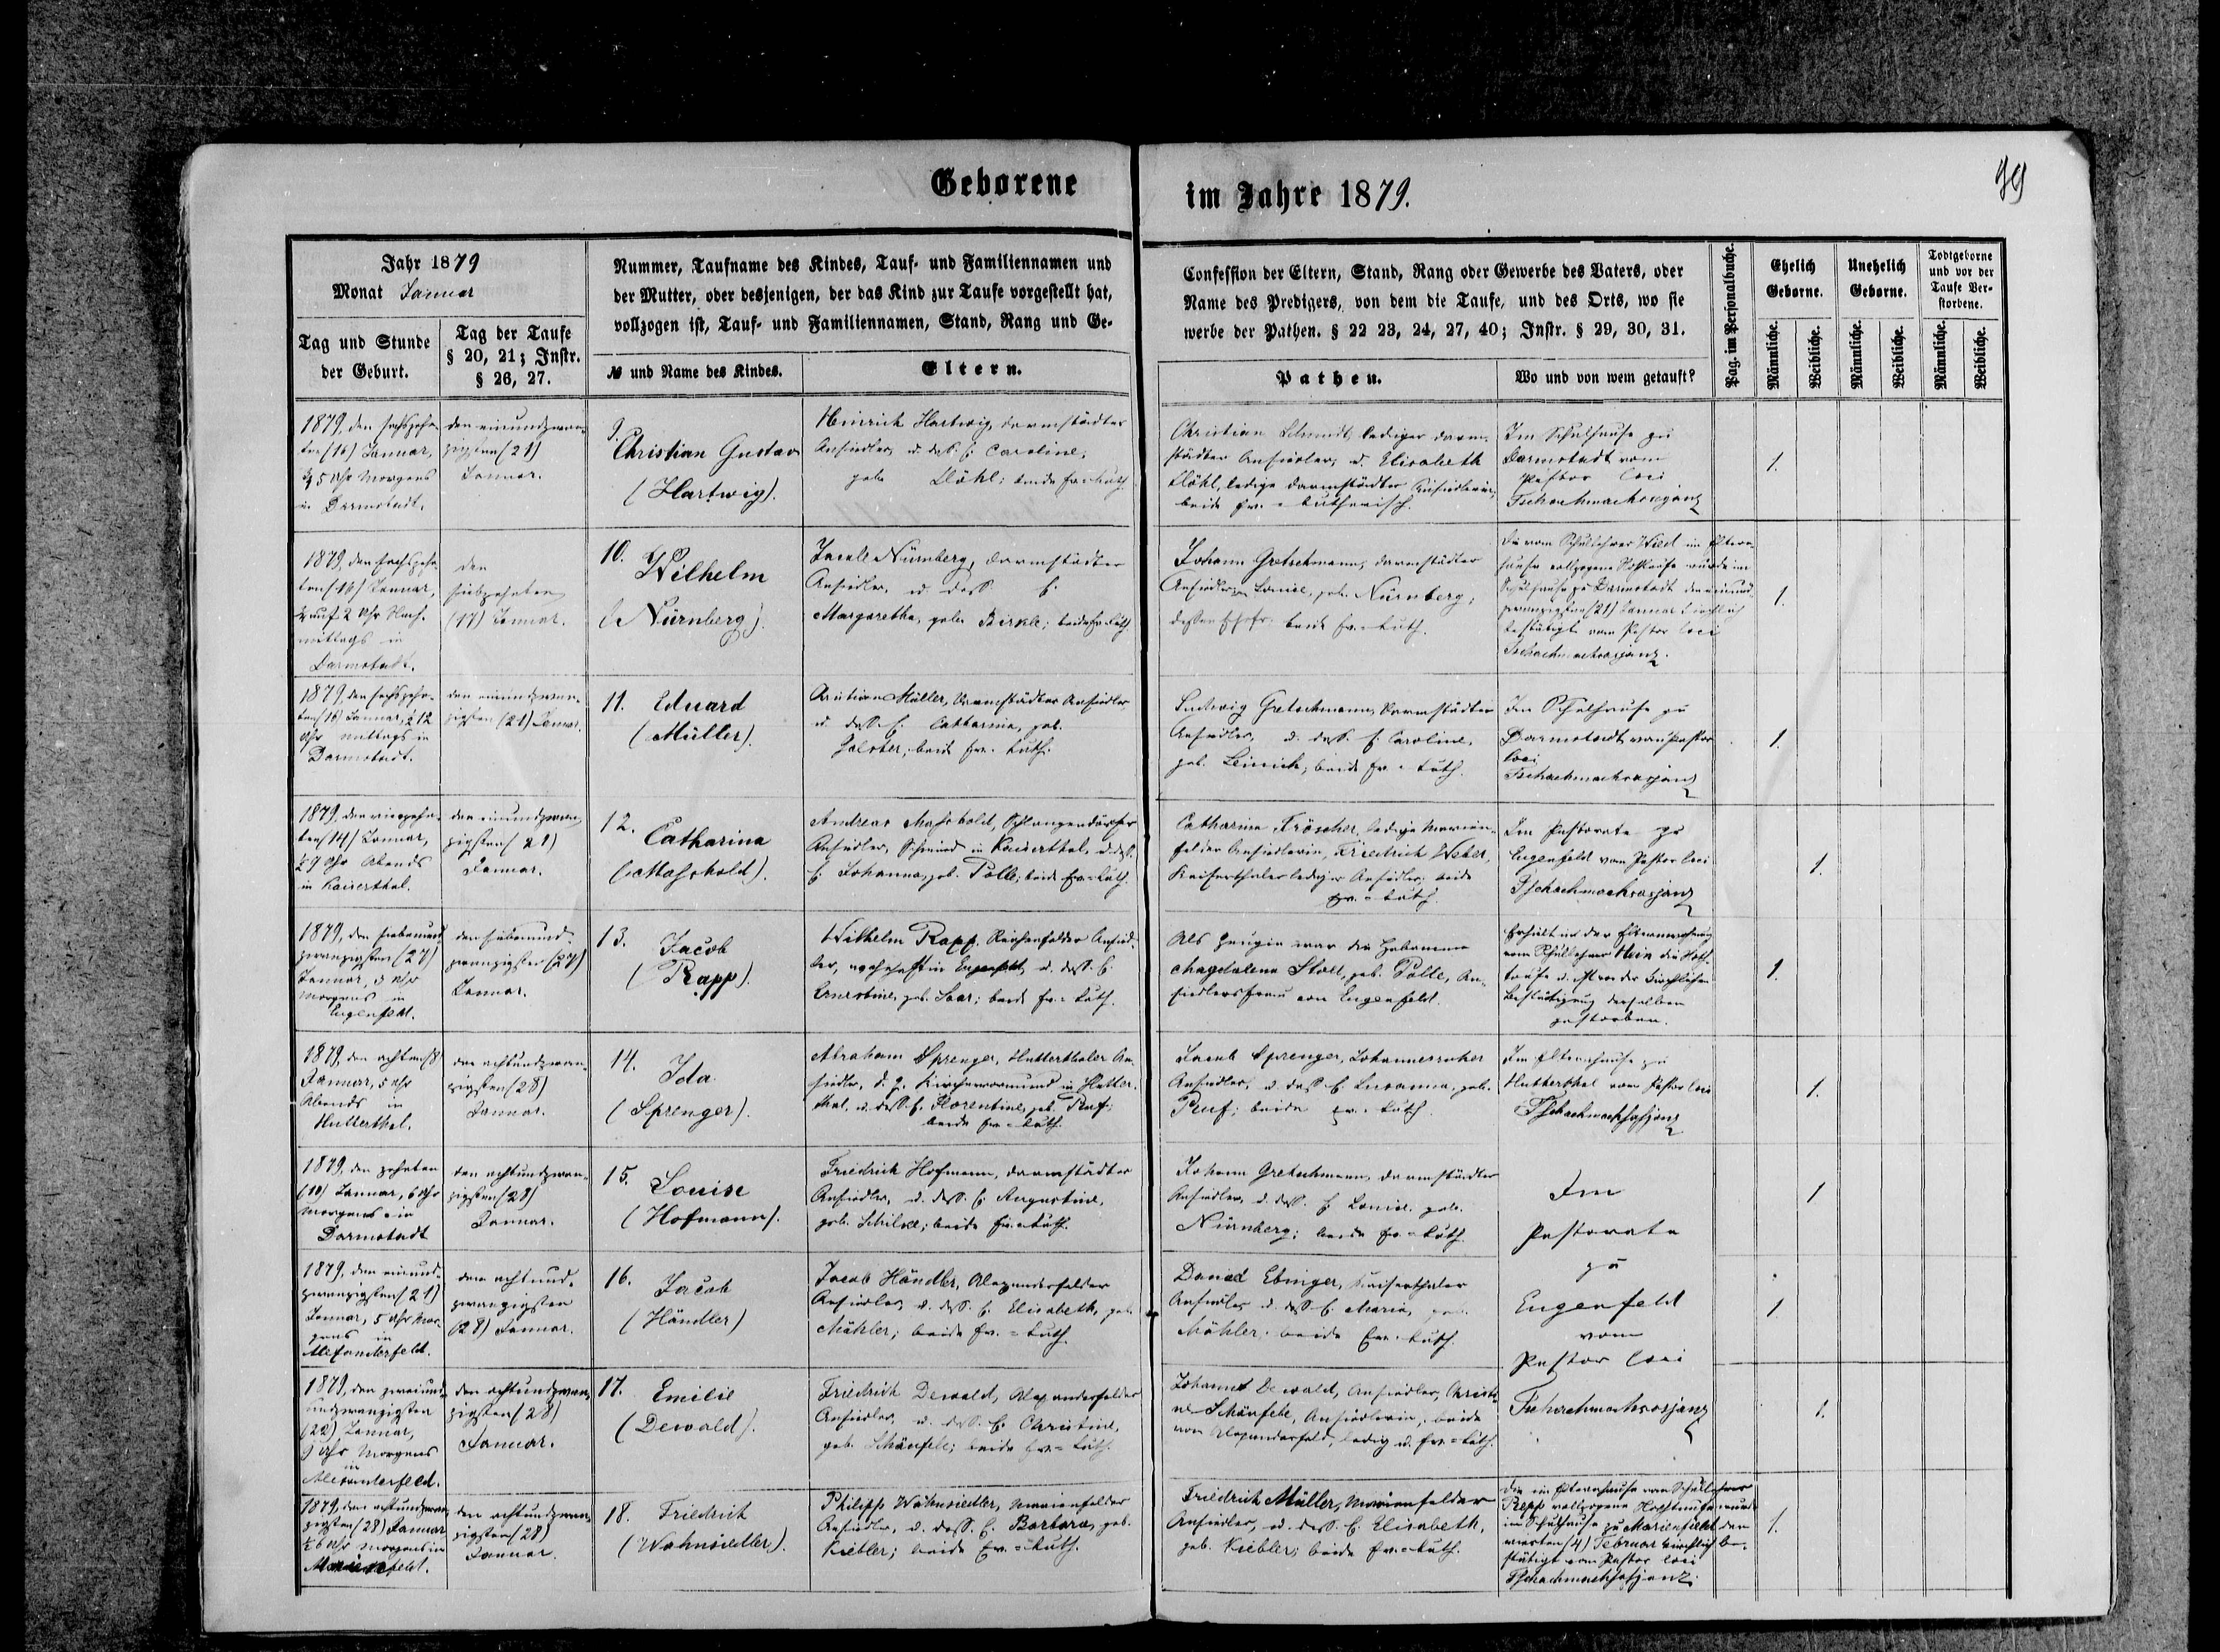 99
Geborene im Jahre 1879.
Jahr 1879
Monat Januar
Tag und Stunde
der Geburt.
Tag der Taufe
§ 20, 21; Instr.
§ 26, 27.
Nummer, Taufname des Kindes, Tauf- und Familiennamen und
der Mutter, oder desjenigen, der das Kind zur Taufe vorgestellt hat,
vollzogen ist, Tauf- und Familiennamen, Stand, Rang und Ge-
№ und Name des Kindes.
Eltern.
Confession der Eltern, Stand, Rang oder Gewerbe des Vaters, oder
Name des Predigers, von dem die Taufe, und des Orts, wo sie
werbe der Pathen. § 22 23, 24, 27, 40; Instr. § 29, 30, 31.
Pathen.
Wo und von wem getauft?
Pag. im Personalbuche.
Ehelich
Geborne.
Unehelich
Geborne.
Todtgeborne
und vor der
Taufe Ver-
storbene.
Männliche.
Weibliche.
Männliche.
Weibliche.
Männliche.
Weibliche.
1879, den sechszehn-
ten (16) Januar,
5 Uhr Morgens
in Darmstadt.
den einundzwan-
zigsten (21)
Januar.
9.
Christian Gustav
(Hartwig).
Heinrich Hartwig, darmstädter
Ansiedler, u. dess. E. Caroline,
geb. Döhl; beide ev.=luth.
Christian Schmidt, lediger darm-
städter Ansiedler, u. Elisabeth
Döhl, ledige darmstädter Ansiedlerin,
beide ev.=lutherisch.
Im Schulhause zu
Darmstadt vom
Pastor loci
Tschachmachsasjanz
1.
1879, den sechszehn-
ten (16) Januar,
auf 2 Uhr Nach-
mittags in
Darmstadt.
den
siebzehnten
(17) Januar.
10.
Wilhelm
(Nürnberg).
Jacob Nürnberg, darmstädter
Ansiedler, u. dess. E.
Margaretha, geb. Birkle; beide ev.=luth.
Johann Gretschmann, darmstädter
Ansiedler, Louise, geb. Nürnberg,
dessen Ehefr. beide ev.=luth.
Die vom Schullehrer Wied im Eltern-
hause vollzogene Nothtaufe wurde im
Schulhause zu Darmstadt den einund-
zwanzigsten (21) Januar kirchlich
bestätigt vom Pastor loci
Tschachmachsasjanz.
1.
1879, den sechszehn-
ten (16) Januar, 12
Uhr mittags in
Darmstadt.
den einundzwan-
zigsten (21) Januar.
11. Eduard
(Müller).
Christian Müller, Darmstädter Ansiedler
u. dess. E. Catharina, geb.
beide ev.=luth.
Ludwig Gretschmann, Darmstädter
Ansiedler, u. dess. E. Caroline,
geb. beide ev.=luth.
Im Schulhause zu
Darmstadt vom Pastor
loci
Tschachmachsasjanz
1.
1879, den vierzehn-
ten (14) Januar,
Uhr Abends
in Kaiserthal.
den einundzwan-
zigsten (21)
Januar.
12.
Catharina
(Maschold).
Andreas Maschold, Schlangendörfer
Ansiedler, Schmied in Kaiserthal, u. dess.
E. Johanna, geb. Polle; beide ev.=luth.
Catharina Fröscher, ledige Marien-
felder Ansiedlerin, Friedrich Weber,
Kaiserthaler lediger Ansiedler; beide
ev.=luth.
Im Pastorate zu
Eugenfeld vom Pastor loci
Tschachmachsasjanz
1.
1879, den siebenund-
zwanzigsten (27)
Januar, 3 Uhr
Morgens in
Eugenfeld.
den siebenund-
zwanzigsten (27)
Januar.
13.
Jacob
(Rapp).
Wilhelm Rapp, Reichenfelder Ansied-
ler, wohnhaft in Eugenfeld, u. dess. E.
Ernestine, geb. Saar; beide ev.=luth.
Als Zeugin war die Hebamme
Magdalena Stoll, geb. Polle, An-
siedlersfrau von Eugenfeld.
Erhielt in der Elternwohnung
vom Schullehrer Hein die Noth-
taufe u. ist vor der kirchlichen
Bestätigung derselben
gestorben.
1.
1879, den achten (8)
Januar, 5 Uhr
Abends in
Hutterthal.
den achtundzwan-
zigsten (28)
Januar.
14.
Ida
(Sprenger).
Abraham Sprenger, Hutterthaler An-
siedler, d. Z. Kirchenvormund in Hutter-
thal, u. dess. E. Florentine, geb. Pruf;
beide ev.=luth.
Jacob Sprenger, Johannesruher
Ansiedler, u. dess. E. Susanna, geb.
Pruf; beide ev.=luth.
Im Elternhause zu
Hutterthal vom Pastor loci
Tschachmachsasjanz
1.
1879, den zehnten
(10) Januar, 6 Uhr
Morgens in
Darmstadt
den achtundzwan-
zigsten (28)
Januar.
15.
Louise
(Hofmann).
Friedrich Hofmann, darmstädter
Ansiedler, u. dess. E. Augustine,
geb. Schilke; beide ev.=luth.
Johann Gretschmann, darmstädter
Ansiedler, u. dess. E. Louise, geb.
Nürnberg; beide ev.=luth.
Im
Pastorate
zu
Eugenfeld
vom
Pastor loci
Tschachmachsasjanz
1
1879, den einund-
zwanzigsten (21)
Januar, 5 Uhr Mor-
gens in
Alexanderfeld.
den achtund-
zwanzigsten
(28) Januar.
16.
Jacob
(Händler)
Jacob Händler, Alexanderfelder
Ansiedler, u. dess. E. Elisabeth, geb.
Mähler; beide ev.=luth.
Daniel Ebinger, Kaiserthaler
Ansiedler u. dess. E. Maria, geb.
Mähler; beide ev.=luth.
1
1879, den zweiund-
undzwanzigsten
(22) Januar,
Uhr Morgens
in
Alexanderfeld.
den achtundzwan-
zigsten (28)
Januar.
17.
Emilie
(Dewald).
Friedrich Dewald, Alexanderfelder
Ansiedler, u. dess. E. Christine,
geb. Schäufele; beide ev.=luth.
Johannes Dewald, Ansiedler, Christi-
ne Schäufele, Ansiedlerin, beide
von Alexanderfeld, ledig u. ev.=luth.
1.
1879, den achtundzwan-
zigsten (28) Januar
6 Uhr Morgens in
Marienfeld.
den achtundzwan-
zigsten (28)
Januar.
18. Friedrich
(Wahnsiedler).
Philipp Wahnsiedler, Marienfelder
Ansiedler, u. dess. E. Barbara, geb.
Kiebler; beide ev.=luth.
Friedrich Müller, Marienfelder
Ansiedler, u. dess. E. Elisabeth,
geb. Kiebler; beide ev.=luth.
Die im Elternhause vom Schullehrer
Repp vollzogene Nothtaufe wurde
im Schulhause zu Marienfeld den
vierten (4) Februar kirchlich be-
stätigt vom Pastor loci
Tschachmachsasjanz.
1.